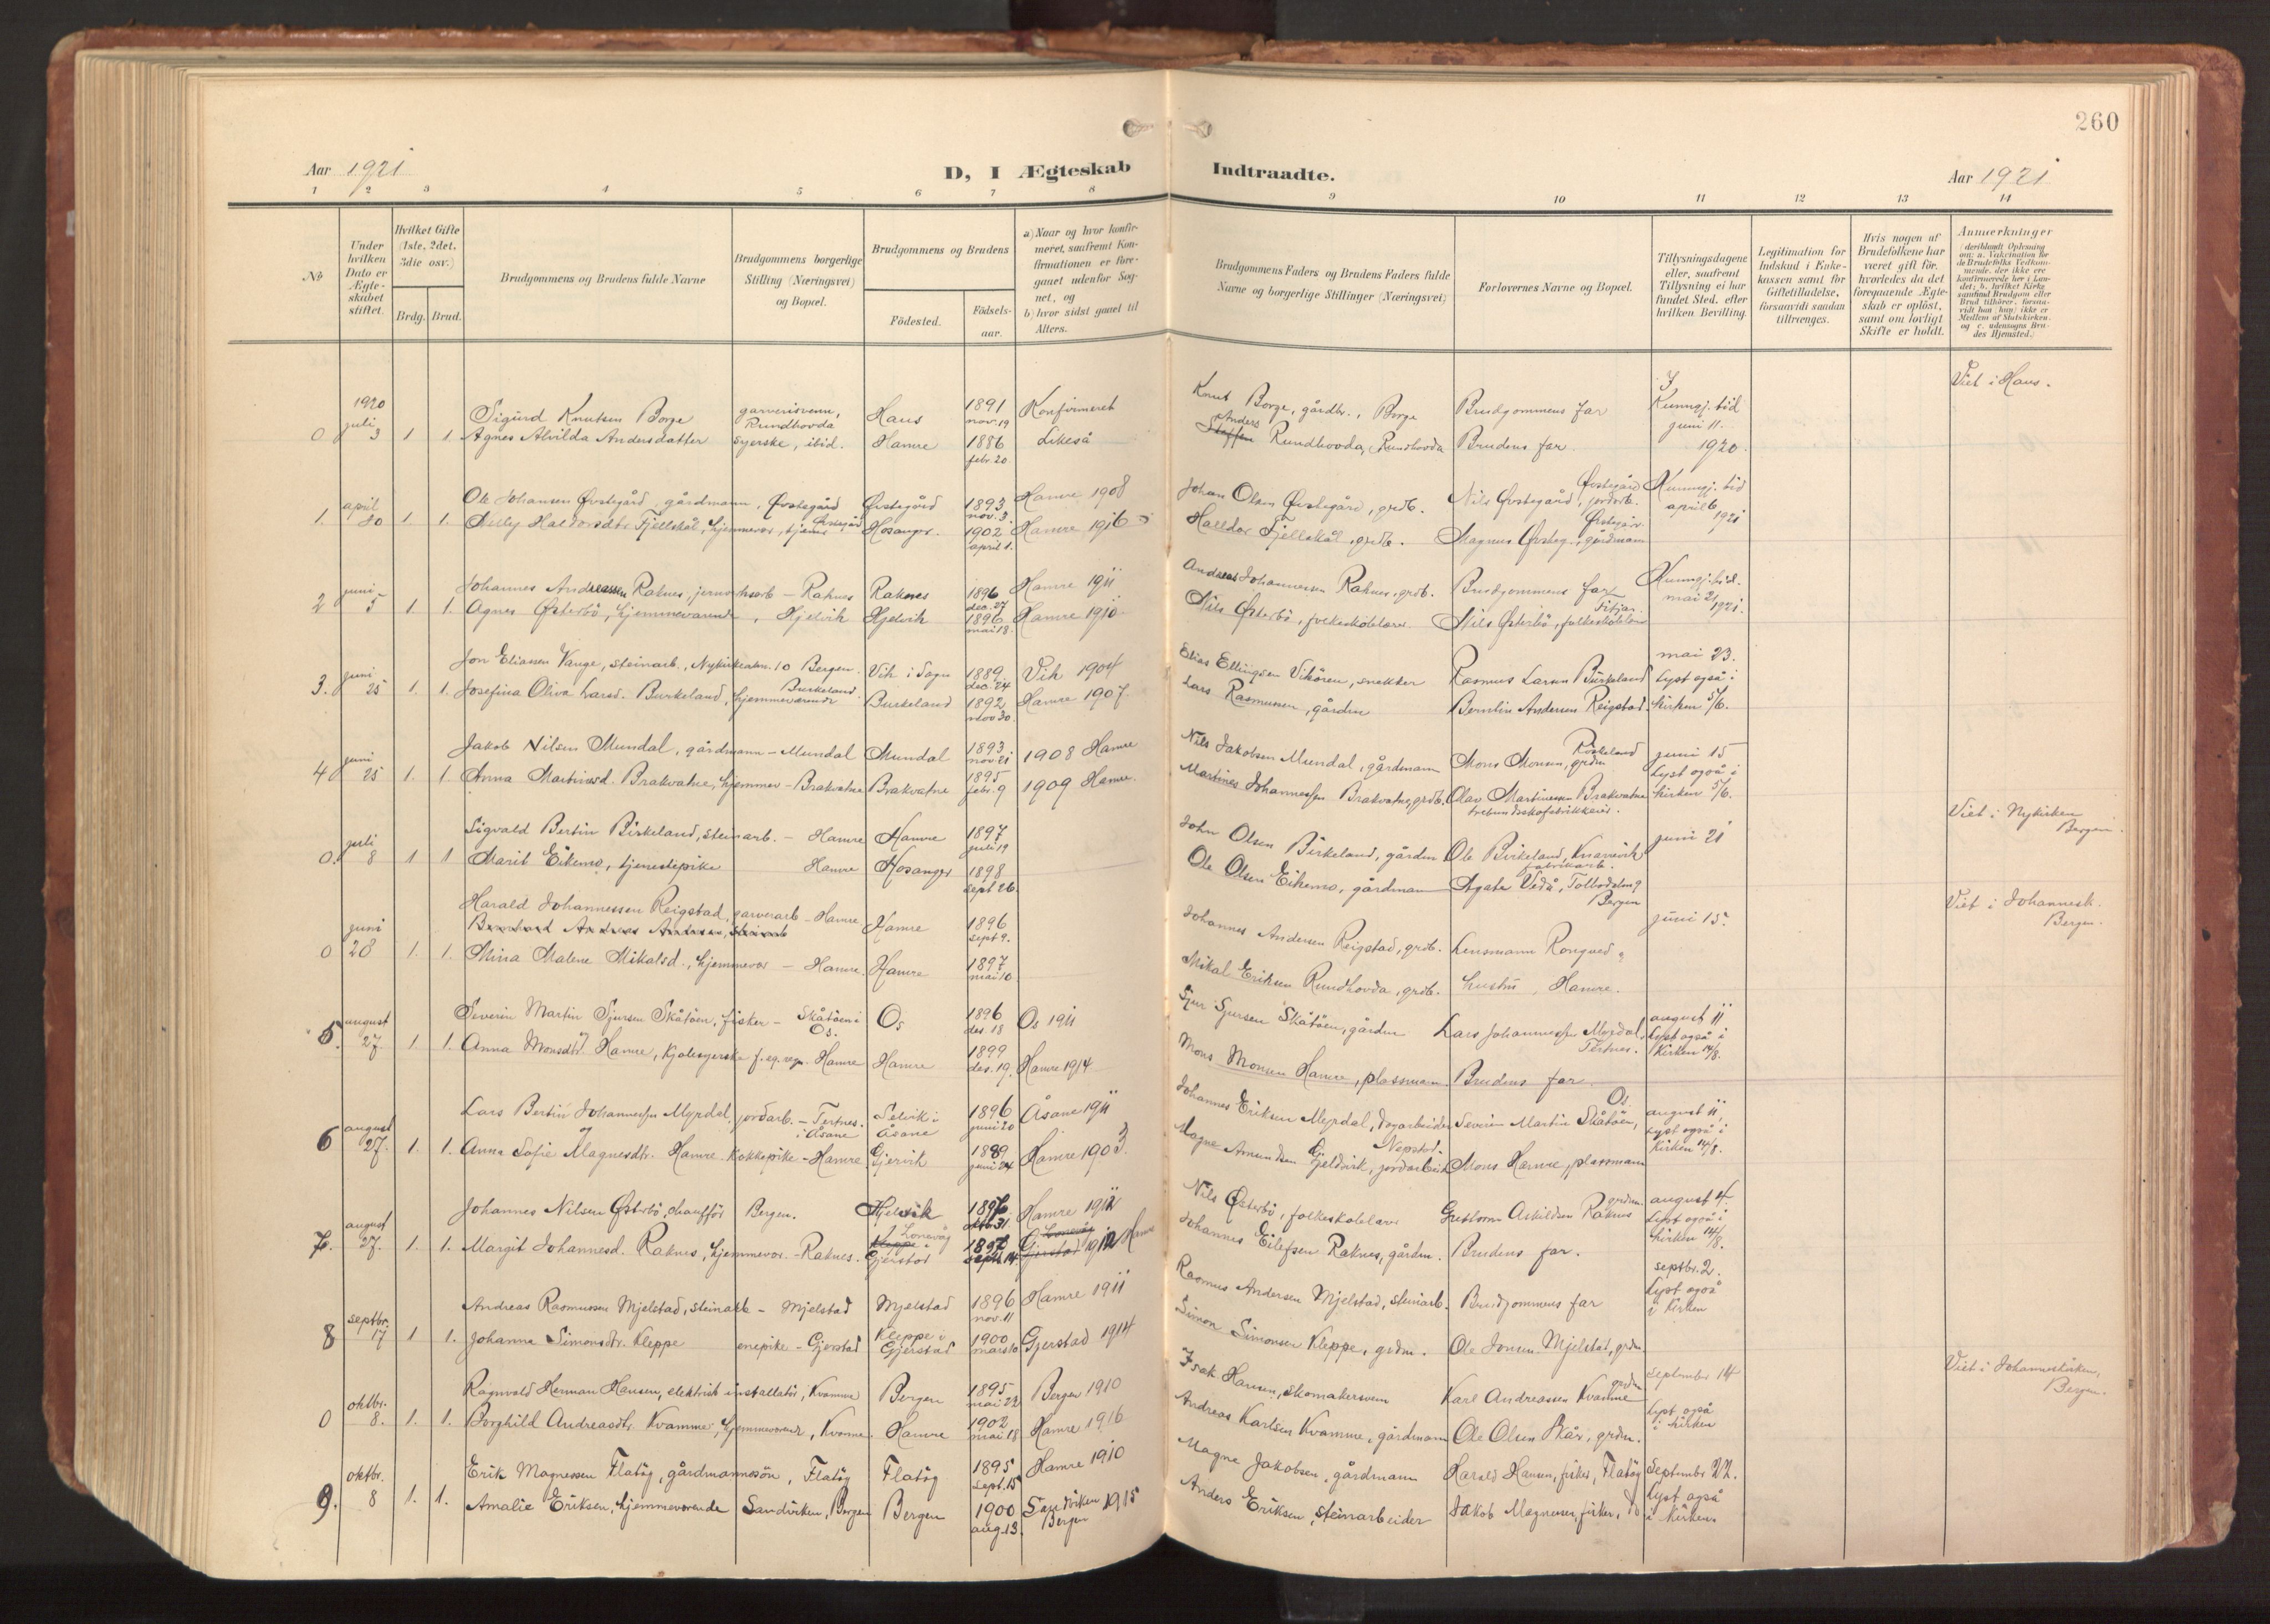 260
Aar 1921
D, I Ægteskab Indtraadte.
Aar 1921
1 2 3 4 5 6 7 8 9 10 11 12 13 14
No
Under hvilken Dato er Ægteskabet stiftet.
Hvilket Gifte (1ste, 2det, 3die osv.)
Brdg. Brud.
Brudgommens og Brudens fulde Navne
Brudgommens borgerlige Stilling (Næringsvei) og Bopæl.
Brudgommens og Brudens
Fødested.
Fødselsaar.
a) Naar og hvor konfirmeret, saafremt Konfirmationen er foregaaet udenfor Sognet, og
b) hvor sidst gaaet til Alters.
Brudgommens Faders og Brudens Faders fulde Navne og borgerlige Stillinger (Næringsvei)
Forlovernes Navne og Bopæl.
Tillysningsdagene eller, saafremt Tillysning ei har fundet Sted, efter hvilken Bevilling.
Legitimation for Indskud i Enkekassen samt for Giftetilladelse, forsaavidt saadan tiltrænges.
Hvis nogen af Brudefolkene har været gift før, hvorledes da det foregaaende Ægteskab er opløst, samt om lovligt Skifte er holdt.
Anmærkninger
(deriblandt Oplysning om: a. Vakcination for de Brudefolks Vedkommende, der ikke ere konfirmerede her i Landet; b. hvilket Kirkesamfund Brudgom eller Brud tilhører, forsaavidt han (hun) ikke er Medlem af Statskirken, og c. udensogns Brudes Hjemsted.)
1920 juli 3
0 1 1. Sigurd Knutsen Borge garverisvenn, Rundhovda Haus 1891 nov. 19 Konfirmeret Knut Borge, gårdbr., Borge Brudgommens far Kunngj. tid juni 11. 1920. Viet i Haus.
Agnes Alvilda Andersdatter syerske, ibid. Hamre 1886 febr. 20 Likeså Anders Rundhovda, Rundhovda Brudens far
1. april 30 1 1. Ole Johansen Øvstegård, gårdmann, Øvstegård Øvstegård 1893 nov. 3 Hamre 1908 Johan Olsen Øvstegård, grdb. Nils Øvstegård, Øvstegård Kunngj. tid april 6 1921
Haldorsdtr Fjellskål, hjemmevær., Hosanger. 1902 april 1. Hamre 1916 Halldor Fjellskål, grdb. Magnus Øvsteg., gårdmann
2 juni 5 1. 1. Johannes Andreassen Raknes, Raknes Raknes 1896 dec. 27 Hamre 1911 Andreas Johannessen Raknes, grdb. Brudgommens far Kunngj. tid. mai 21 1921.
Agnes Østerbø, hjemmeværende, Hjelvik Hjelvik 1896 mai 18 Hamre 1910 Nils Østerbø, folkeskolelærer Nils Østerbø, folkeskolelærer
3. juni 25 1. 1. Jon Eliassen Vange, steinarb., 10 Bergen. Vik i Sogn 1889 dec. 24 Vik 1904 Elias Ellingsen Vikøren, snekker Rasmus Larsen Burkeland mai 23. Lyst også i kirken 5/6.
Josefina Oliva Larsd. Burkeland, hjemmeværende Burkeland Burkeland 1892 nov 30. Hamre 1907. Lars Rasmussen, gårdm Andersen Reigstad.
4 juni 25 1. 1. Jakob Nilsen Mundal, gårdmann - Mundal Mundal 1893 nov 21 1908 Hamre Nils Jakobsen Mundal, gårdmann Mons Monsen, grdm juni 15 Lyst også i kirken 5/6.
Anna Martinusd. Brakvatne, hjemmev - Brakvatne Brakvatne 1895 febr. 9 1909 Hamre. Martines Johannessen Brakvatne, grdb. Olav Martinessen Brakvatne
0. juli 8 1 1 Sigvald Bertin Birkeland, steinarb. - Hamre Hamre 1897 juli 19 John Olsen Birkeland, gårdm Ole Birkeland, Knarvik fabrikarb. juni 21 Viet i Nykirken Bergen.
Marit Eikemo, tjenestepike Hamre Hosanger 1898 sept 26. Ole Olsen Eikemo, gårdmann Agate Vedå, Bergen
0 juni 28 1. 1. Harald Johannessen Reigstad, garverarb - Hamre Hamre 1896 sept 9. Johannes Andersen Reigstad, grdb. Lensmann Rongved og juni 15. Viet i Johannesk. Bergen.
Mina Malene Mikalsd., hjemmevær - Hamre. Hamre 1897 mai 10. Mikal Eriksen Rundhovda, grdb. hustru, Hamre.
5. august 27. 1 1. Severin Martin Sjursen Skåtøen, fisker - Skåtøen i Os. Os 1896 des. 18 Os 1911 Sjur Sjursen Skåtøen, gårdm Lars Johannessen Myrdal, Tertnes. august 11 Lyst også i Kirken 14/8.
Anna Monsdtr Hamre, kjolesyerske f. eg. regn. Hamre Hamre 1899 des. 19. Hamre 1914 Mons Monsen Hamre, plassmann Brudens far
6 august 27. 1. 1. Lars Bertin Johannessen Myrdal, jordarb. - Tertnes. i Åsane Selvik i Åsane 1896 juni 20 Åsane 1911 Johannes Eriksen Myrdal, dagarbeider Severin Martin Skåtøen, Os. august 11, Lyst også i Kirken 14/8.
Anna Sofie Magnesdtr. Hamre. kokkepike - Hamre Gjervik 1889 juni 24 Hamre 1903. Magne Amundsen Gjeldvik, jordarbeid. Mons Hamre, plassmann
7. august 27. 1. 1. Johannes Nilsen Østerbø, chauffør Bergen. Hjelvik 1896 oktbr 31. Hamre 1912 Nils Østerbø, folkeskolelærer Guttorm Askildsen Raknes grdm. august 4 Lyst også i kirken 14/8.
Margit Johannesd. Raknes, hjemmevær. - Raknes. Lonevåg i Gjerstad septb. 14 1912 Hamre Johannes Eilefsen Raknes, gårdm. Brudens far.
8 septbr. 17 1 1. Andreas Rasmussen Mjelstad, steinarb - Mjelstad Mjelstad 1896 nov. 11 Hamre 1911 Rasmus Andersen Mjelstad, steinarb. Brudgommens far septbr. 2. Lyst også i Kirken
Johanna Simonsdtr. Kleppe enepike - Gjerstad Kleppe i Gjerstad 1900 mars 10 Gjerstad 1914 Simon Simonsen Kleppe, grdm. Ole Jonsen Mjelstad, grdm
0 oktbr. 8. 1. 1. Ragnvald Herman Hansen, elektrisk installatør, Kvamme Bergen 1895 mai 22 Bergen 1910 Isak Hansen, skomakersvenn Karl Andreassen Kvamme grdm September 14 Lyst også i kirken Viet i Johanneskirken, Bergen.
Borghild Andreasdtr. Kvamme, hjemmeværend, Kvamme. Hamre 1902 mai 18 Hamre 1916 Andreas Karlsen Kvamme, gårdmann Ole Olsen Skår, grdm.
9. oktbr. 8 1. 1. Erik Magnessen Flatøy, gårdmannssøn, Flatøy Flatøy 1895 sept. 15 Hamre 1910 Magne Jakobsen, gårdmann Harald Hansen, fisker, Flatøy September 22. Lyst også i kirken.
Amalie Eriksen, hjemmeværende Sandviken, Bergen Bergen 1900 aug. 13. Sandviken Bergen 1915 Anders Eriksen, steinarbeider Jakob Magnessen, fisker, do